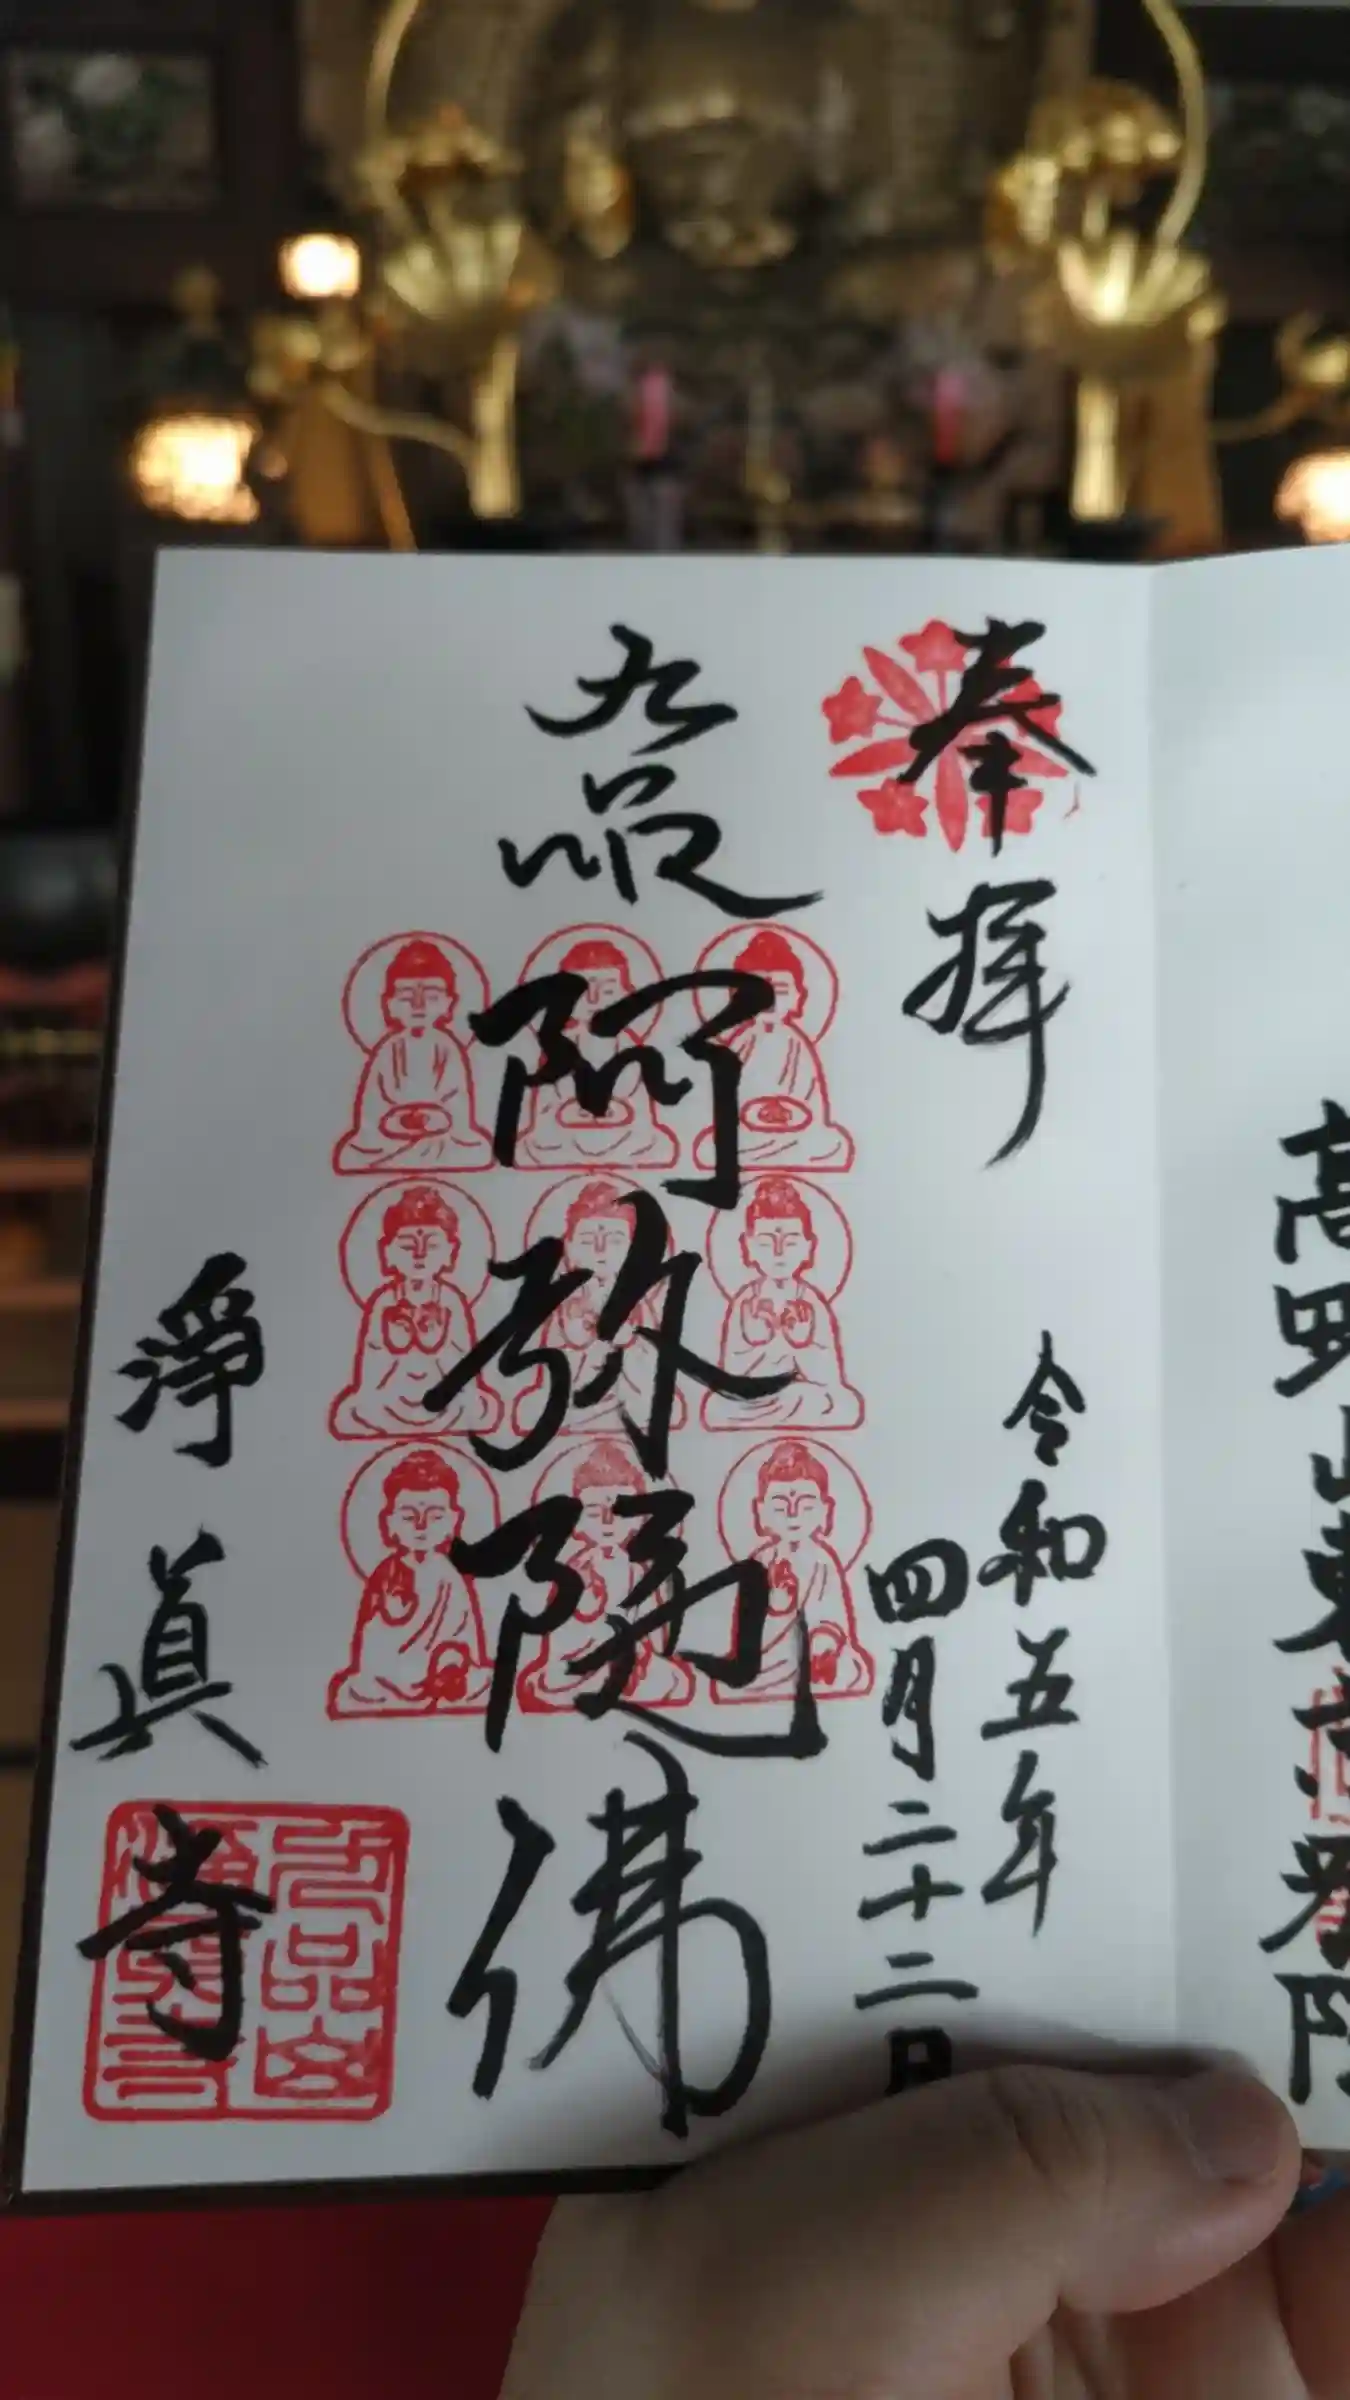 高野山東
奉拝
令和五年
四月二十二日
九品
阿弥陀佛
淨眞寺
九品山